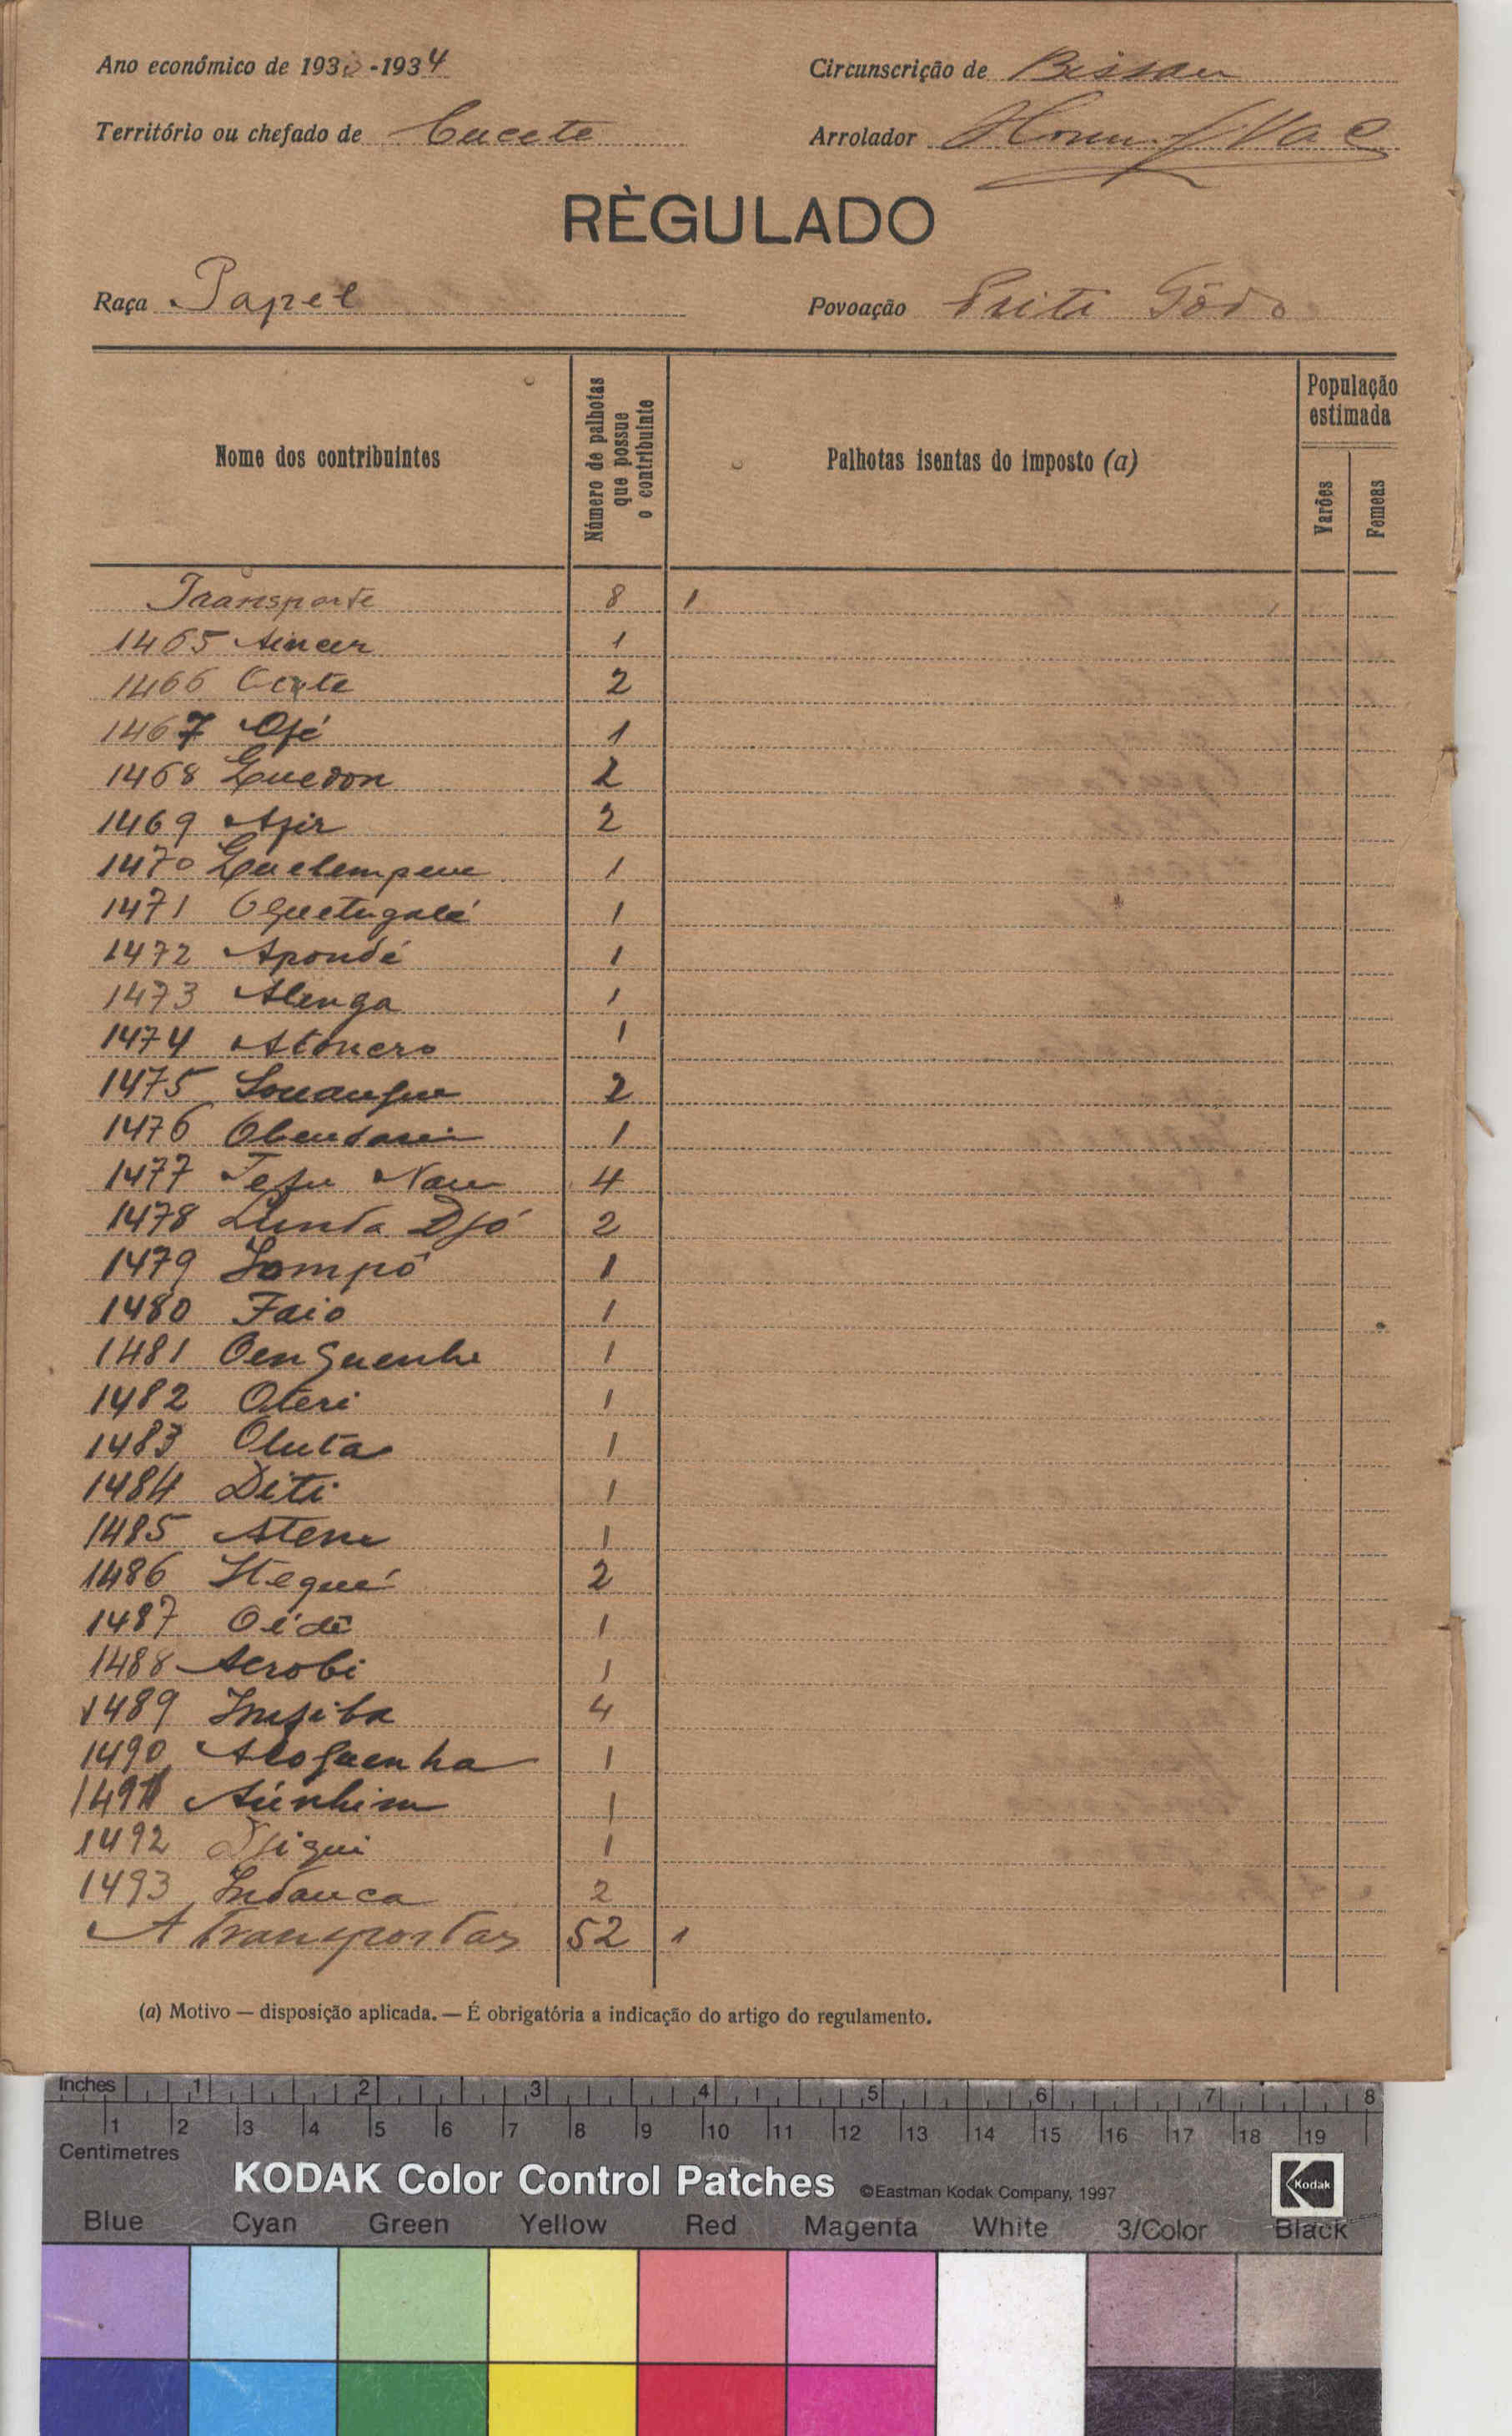 Ano económico de 193 -1934
Circunscrição de Bissau
Território ou chefado de Cucete
Arrolador
RÈGULADO
Raça Papel
Povoação Priti Gôdo
Nome dos contribuintes
Número de palhotas que possue o contribuinte
Palhotas isentas do imposto (a)
População estimada
Varões
Femeas
Transporte 8 1
1465 1
1466 2
1467 Ofé 1
1468 Guedon 2
1469 2
1470 Guelempeue 1
1471 Oguetugalé 1
1472 Apondé 1
1473 Alenga 1
1474 Atonero 1
1475 2
1476 1
1477 4
1478 Lunda Djó 2
1479 Sompô 1
1480 Faio 1
1481 Oenguenhe 1
1482 Oteri 1
1483 Oluta 1
1484 Diti 1
1485 Atene 1
1486 2
1487 Oédê 1
1488 Acrobi 1
1489 4
1490 Aloguenha 1
1491 Aúnhim 1
1492 Djigui 1
1493 Indauca 2
A Transportar 52 1
(a) Motivo — disposição aplicada. — É obrigatória a indicação do artigo do regulamento.
Inches 1 2 3 4 5 6 7 8
1 2 3 4 5 6 7 8 9 10 11 12 13 14 15 16 17 18 19
Centimetres
KODAK Color Control Patches ©Eastman Kodak Company, 1997 Kodak
Blue Cyan Green Yellow Red Magenta White 3/Color Black